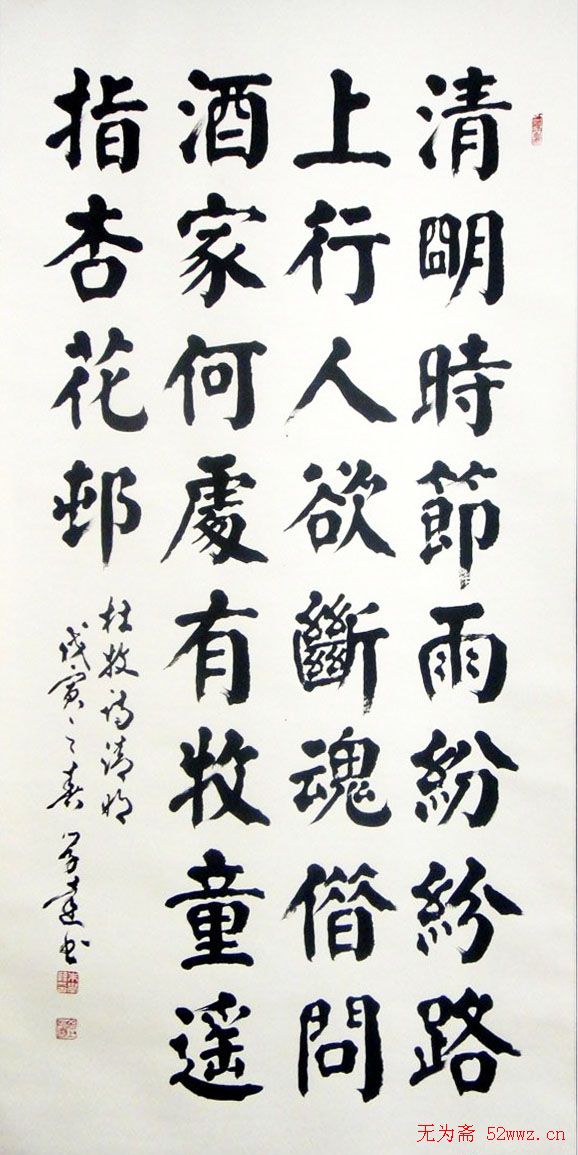 清朙時節雨紛紛路
上行人欲斷魂借問
酒家何處有牧童遥
指杏花邨
杜牧诗清明
戊寅之春 书
无为斋 52wwz.cn